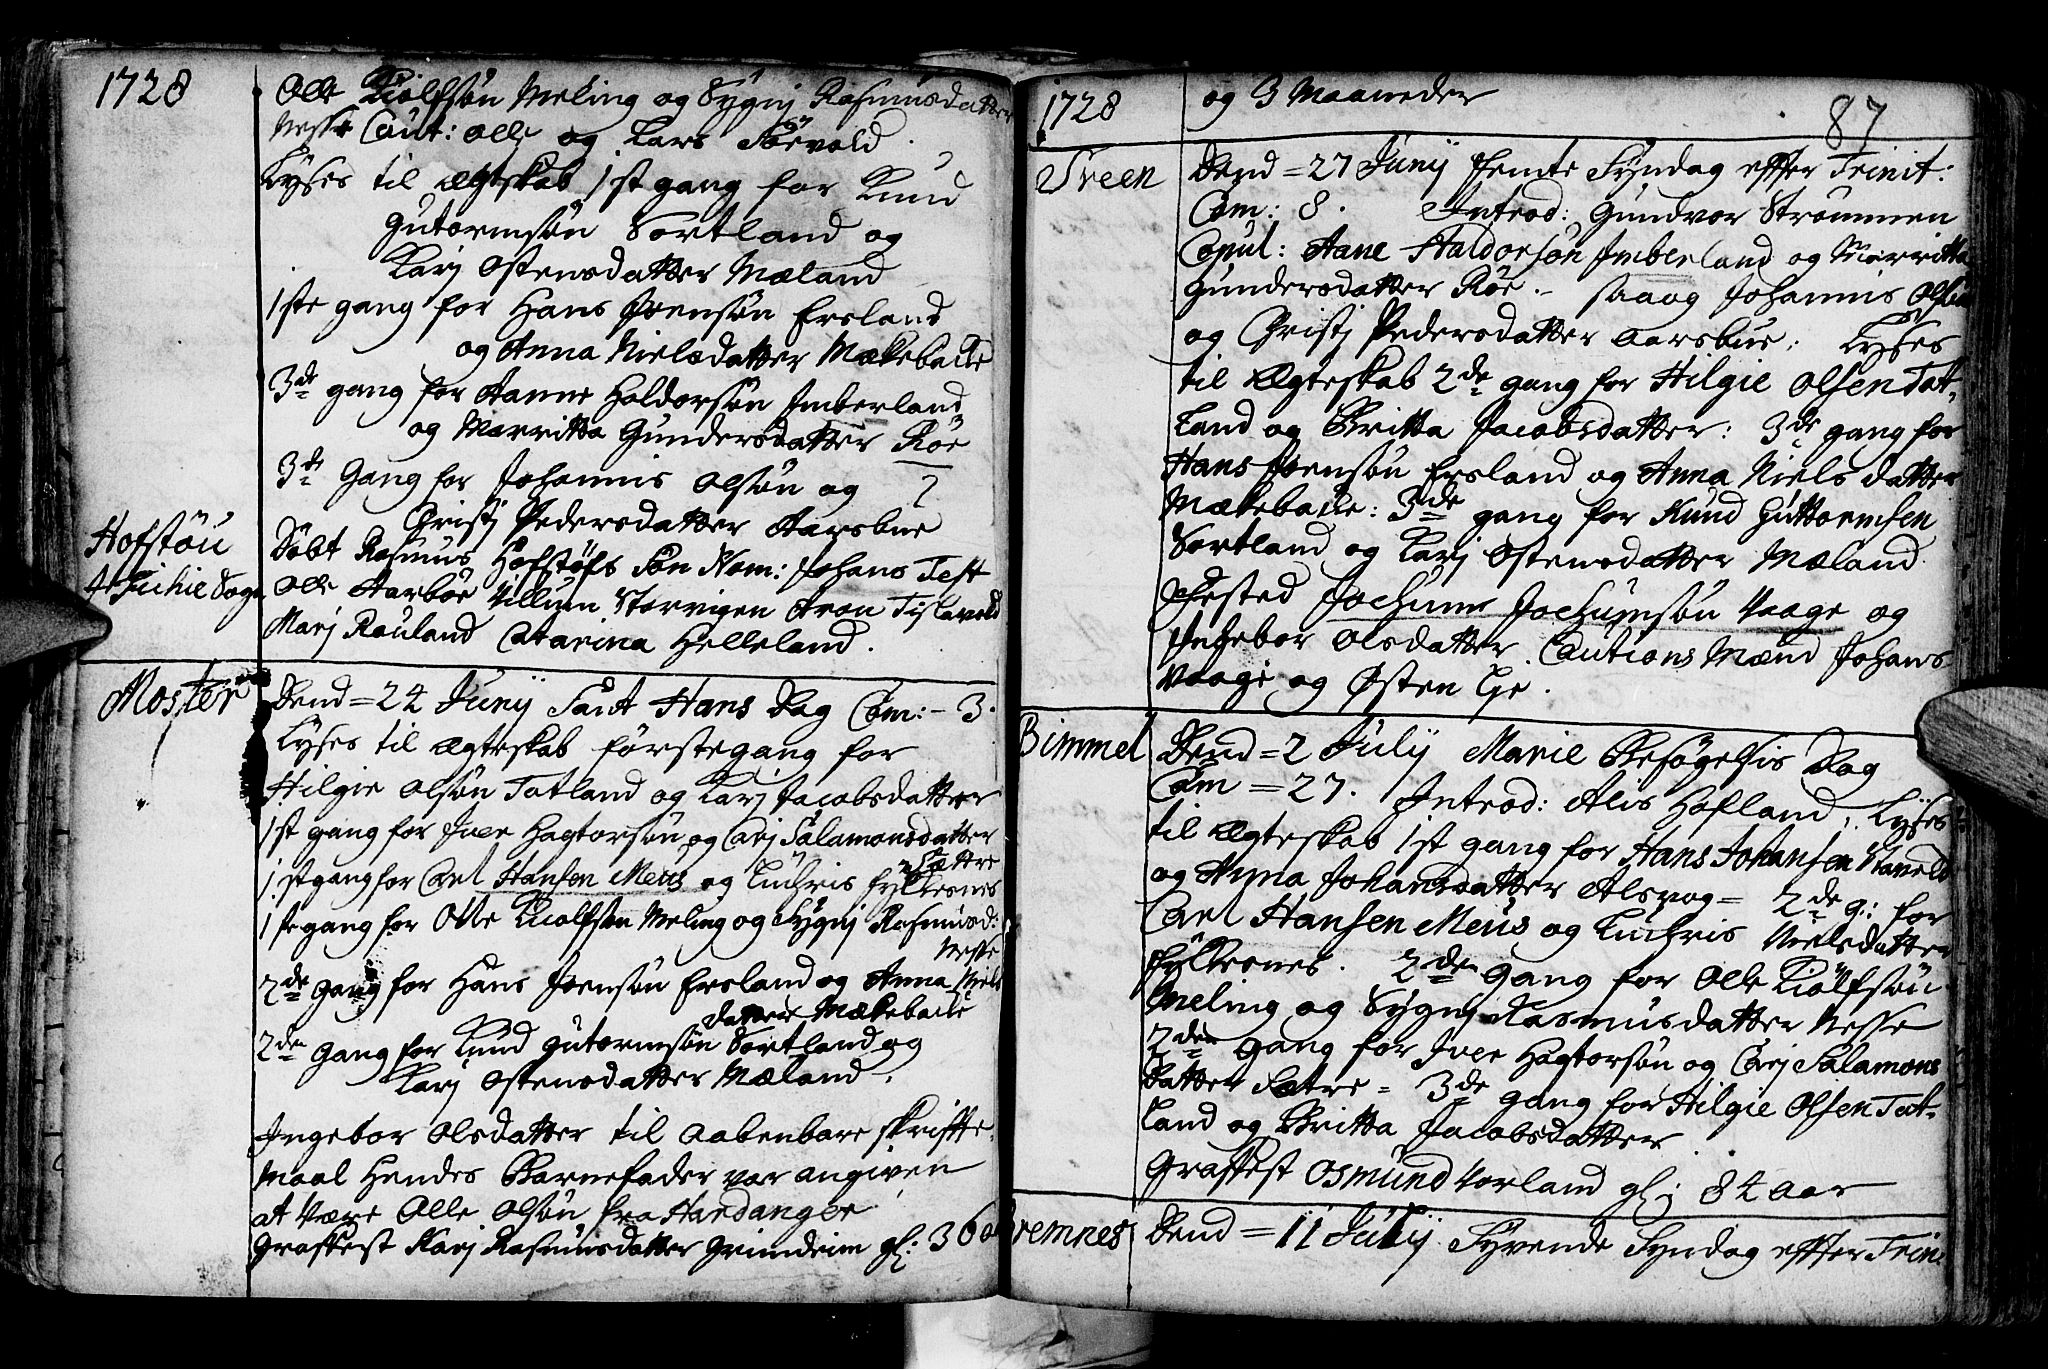 1728
Olle Kiolfsøn Meling og Sÿgnj Rasmusdatter
Nesse Caut: olle og Lars Føevold
Lÿses til ægteskab 1st gang for Knud
Gutormsøn Sortland og
Karj Ostensdatter Mæland
1ste gang for Hans Joensøn Ersland
og Anna Nielsdatter Mækebacke
3de gang for Aanne Haldorsøn Imberland
og Marritta Gundersdatter Røe
3de Gang for Johannis olsøn og
Christj Pedersdatter Aarsbue
Hofstøu
Døbt Rasmus Hofstøfs Søn Nom: Johans Test
Fichie Sogn
olle Aarbøe Villum Storvigen Aron Tislavold
Marj Rouland Catarina Helleland.
Moster
Dend = 24 Junÿ Sant Hans Dag Com: - 3.
Lÿses til ægteskab førstegang for
Hilgie olsøn Tatland og Karj Jacobsdatter
1st gang for Iver Hagtorsøn og Carj Salamonsdatter
Sættre
1st gang for Carl Hansen Meus og Luchris Fÿlkesnes
1ste gang for Olle Kiolfsen Meling og Sÿgnj Rasmusd:
Nesse
2de gang for Hans Joensøn Ersland og Anna Niels
datter Mækebacke
2de gang for Knud gutormsøn Sortland og
Karj Ostensdatter Mæland.
Ingebor olsdatter til aabenbare skrifte-
maal Hendes Barnefader var angiven
at være Olle olsøn fra Hardanger
Graffest Karj Rasmusdatter Grimdeim gl: 36
1728
og 3 Maaneder
87
Treen
Dend = 27 Junÿ femte Sÿndag effter Trinit:
Com: 8. Introd: Gundvor Strømmen
Copul: Aane Haldorsøn Imberland og Marritta
Gundersdatter Røe. - saaog Johannis Olsen
og Christj Pedersdatter aarsbue: Lÿses
til Ægteskab 2de gang for Hilgie olsen Tat-
land og Britta Jacobsdatter: 3de gang for
Hans Joensøn Ersland og Anna Nielsdatter
Mækebacke: 3de gang for Knud Guttormsen
Sortland og Karj Ostensdatter Mæland
Fested Jochum Jochumsøn Vaage og
Ingebor olsdatter. Cautions Mænd Johans
Vaage og Østen Lie.
Bimmel
Dend = 2 Julÿ Marie Besøgelsis Dag
Com = 27. Introd: Alis Hofland, Lÿses
til ægteskab 1st gang for Hans Johansen Staveld
og Anna Johansdatter Alsvog = 2de g: for
Carl Hansen Meus og Luchris Nielsdatter
Fÿlkesnes. 2de gang for olle Kiølfsøn
Meling og Sÿgnj Rasmusdatter Nesse
2den Gang for Iver Hagtorsøn og Carj Salamons
datter Satre = 3de gang for Hilgie Olsen Tat-
land og Britta Jacobsdatter
Graffest Osmund Vorland gl: 84 aar
Bremnes
Dend = 11 Julÿ Sÿvende Sÿndag effter Trin: